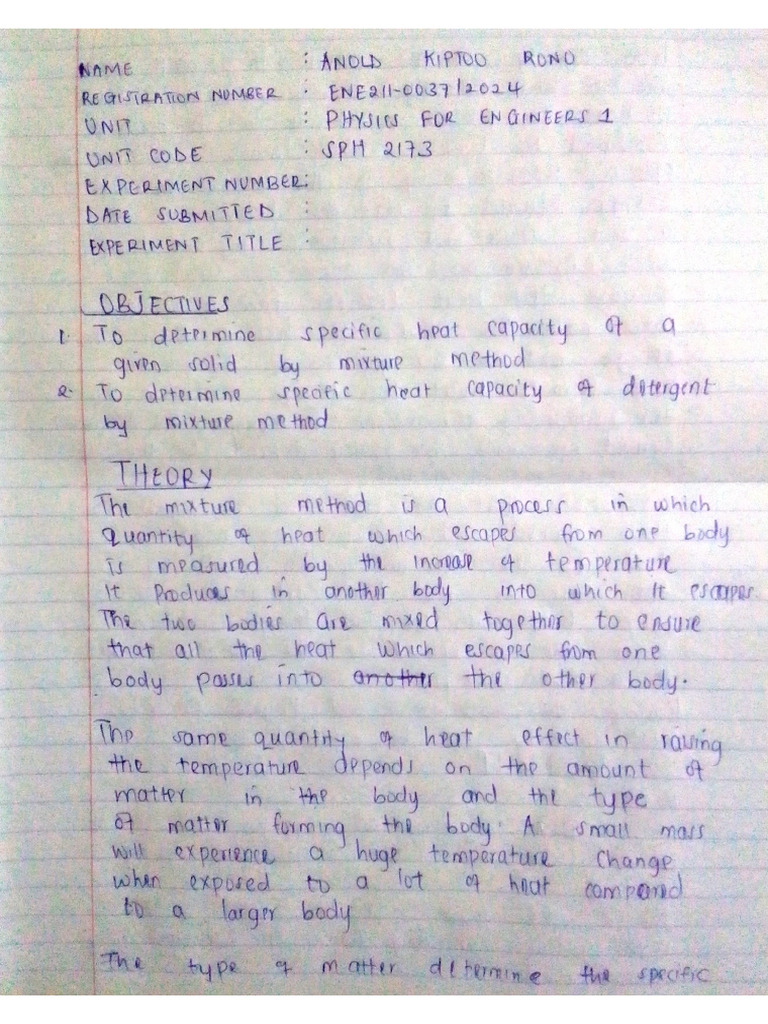 NAME : ANOLD KIPTOO RONO
REGISTRATION NUMBER : ENE211-0037/2024
UNIT : PHYSICS FOR ENGINEERS 1
UNIT CODE : SPH 2173
EXPERIMENT NUMBER:
DATE SUBMITTED :
EXPERIMENT TITLE :
OBJECTIVES
1. To determine specific heat capacity of a
given solid by mixture method
2. To determine specific heat capacity of detergent
by mixture method
THEORY
The mixture method is a process in which
quantity of heat which escapes from one body
is measured by the increase of temperature
it produces in another body into which it escapes.
The two bodies are mixed together to ensure
that all the heat which escapes from one
body passes into another the other body.
The same quantity of heat effect in raising
the temperature depends on the amount of
matter in the body and the type
of matter forming the body. A small mass
will experience a huge temperature change
when exposed to a lot of heat compared
to a larger body
The type of matter determine the specific